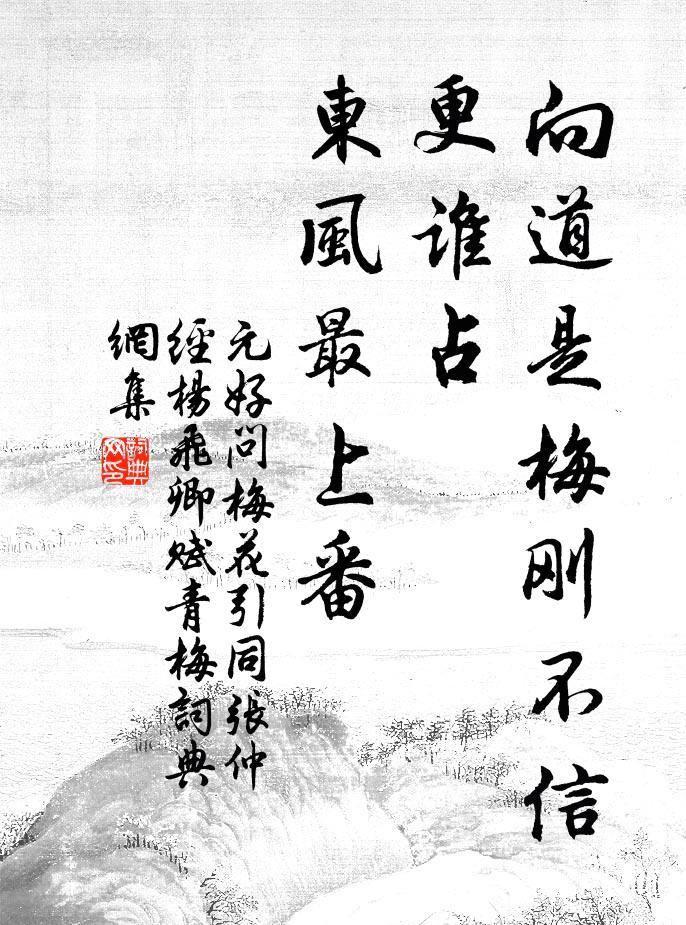 向道是梅刚不信
更谁占
東風最上番
元好问梅花引同張仲
經楊飛卿赋青梅詞典
網集
詞典
网印